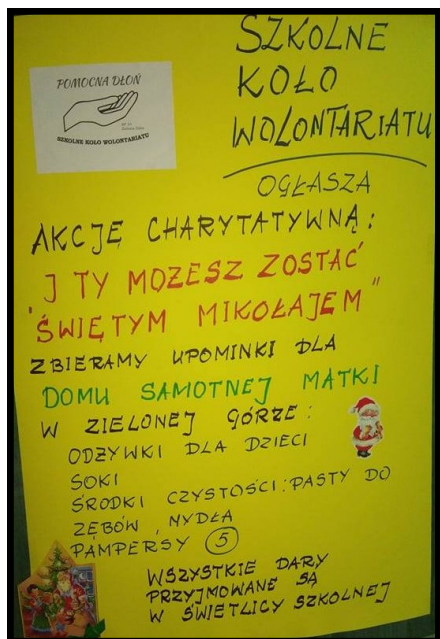 SZKOLNE
KOŁO
WOLONTARIATU
POMOCNA DŁOŃ
SZKOLNE KOŁO WOLONTARIATU
OGŁASZA
AKCJĘ CHARYTATYWNĄ:
I TY MOŻESZ ZOSTAĆ
"ŚWIĘTYM MIKOŁAJEM"
ZBIERAMY UPOMINKI DLA
DOMU SAMOTNEJ MATKI
W ZIELONEJ GÓRZE:
ODŻYWKI DLA DZIECI
SOKI
ŚRODKI CZYSTOŚCI: PASTY DO
ZĘBÓW, MYDŁA
PAMPERSY 5
WSZYSTKIE DARY
PRZYJMOWANE SĄ
W ŚWIETLICY SZKOLNEJ